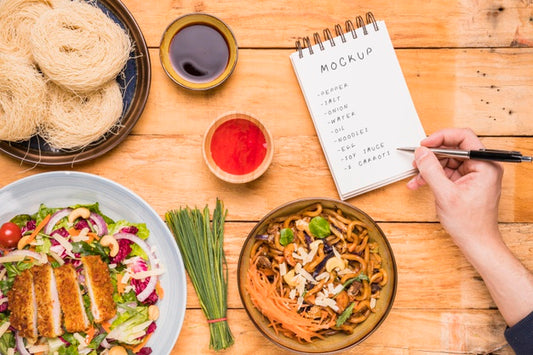 MOCKUP
-PEPPER
-SALT
-ONION
-WATER
-OIL
-NOODLES
-EGG
-SOY SAUCE
-2 CAROTS